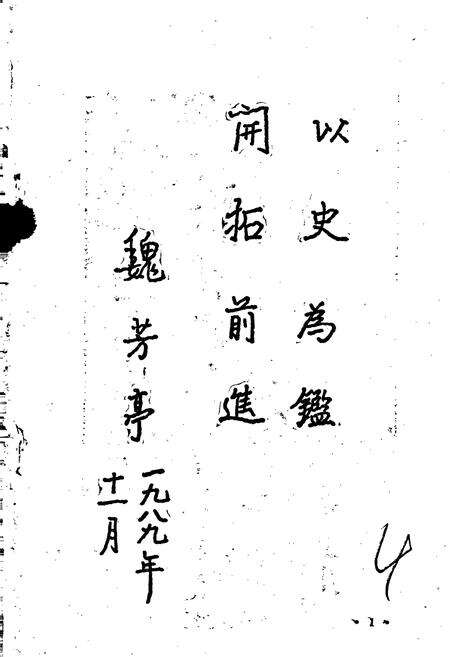 以史為鑑
開拓前進
魏芳亭
一九八九年
十一月
4
- 1 -